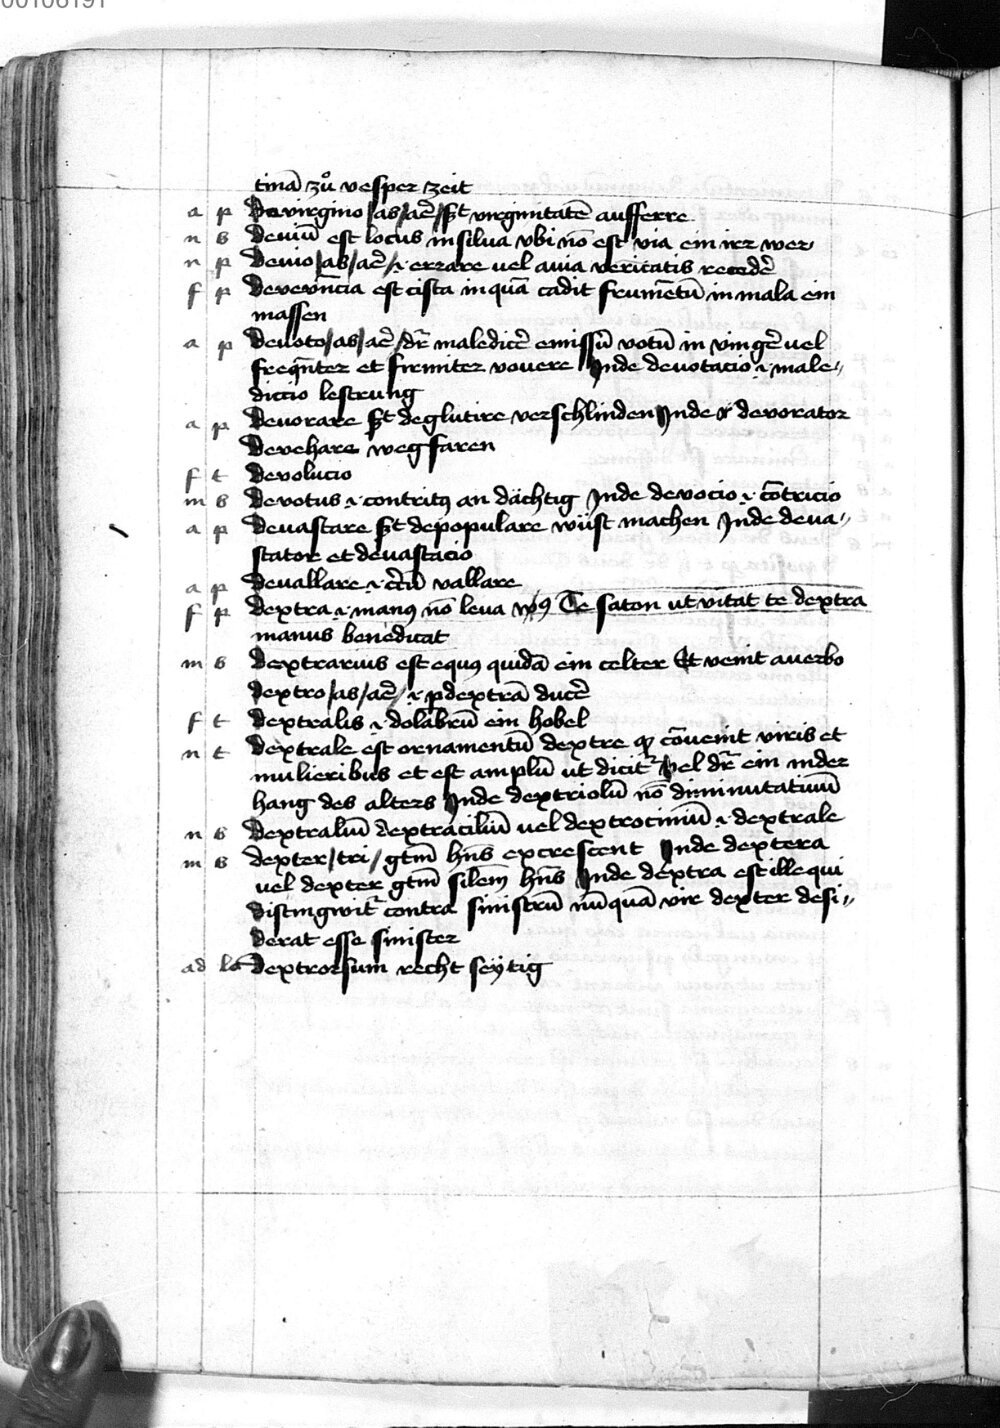 00106191
tinā zů vesper zeit
a p Devirgino /as/aē/ s̄t virginitatē aufferre
n s deuiū est locus in silua vbi nō est via ein irr wer
n p deuio/as/aē/ .i. errare uel auia veritatis recedē
f p deverūcia est cista in quā cadit frumētū in mala ein
massen
a p deuoto/as/aē/ dr̄ maledicē emissū votū in vingē uel
freqn̄ter et firmiter vovere Inde deuotacio .i. male„
diccio lestrung
a p deuorare s̄t deglutire verschlinden Inde devorator
devehare weg faren
f t devolucio
m s devotus .i. contritꝯ an dächtig Inde devocio .i. cōtricio
a p deuastare s̄t depopulare wüst machen Inde deua„
stator et deuastacio
a p deuallare .i. cr̄cū vallare
f p dextra .i. manꝯ nō leua Te saton ut vitat te dextra
manus benedicat
m s dextrarius est equꝯ quidā ein celter Et venit a verbo
dextro/as/aē/ .i. p dextrā ducē
f t dextralis .i. dolabrū ein hobel
n t dextrale est ornamentū dextre qꝫ cōuenit viris et
mulieribus et est amplū ut dicitᷣ Vel dr̄ ein nider
hang des alters Inde dextriolū nō diminutatiuū
n s dextraliū dextraciliū uel dextrociniū .i. dextrale
m s dexter/tri/ gtm̄ hn̄s excrescent Inde dextera
uel dexter gtm̄ silem̄ hn̄s Inde dextra est ille qui
distingwitᷣ contra sinistrū nūquā vir dexter desi„
derat esse sinister
ad lo dextrorsum recht seytig